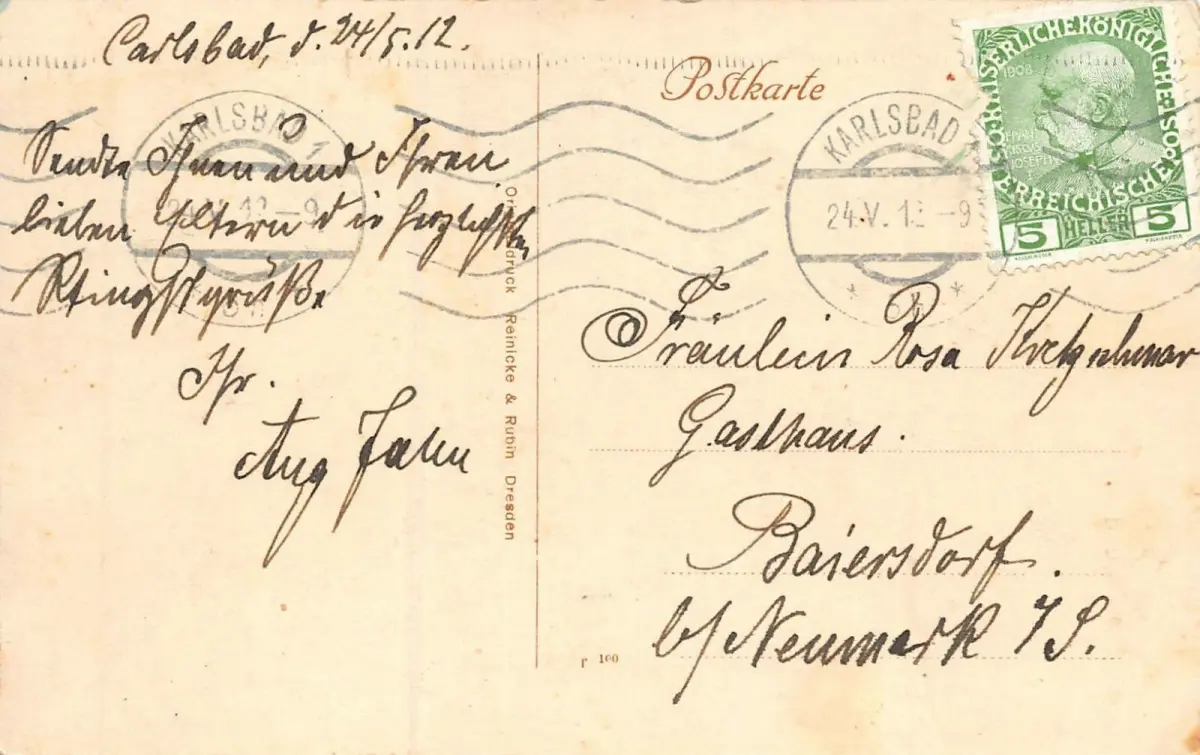 Carlsbad, d. 24/5.12.
Sendte Ihnen und Ihren
lieben Eltern die herzlichsten
Pfingstgrüße
Ihr.
Aug Jahn
Postkarte
KARLSBAD 1
24.V.12-9
KARLSBAD
24.V.12-9
KAISERLICHE KÖNIGLICHE ÖSTERREICHISCHE
1908
JOSEPH I
5 HELLER 5
Fräulein Rosa Kretzschmar
Gasthaus.
Baiersdorf.
b/Neumark I/S.
druck Reinicke & Rubin Dresden
r 100